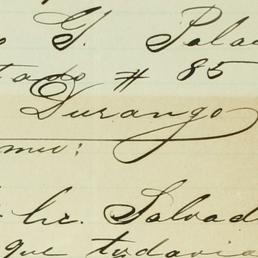 G. Pala
tado # 85
Durango
mio:
Salvad
que todavia